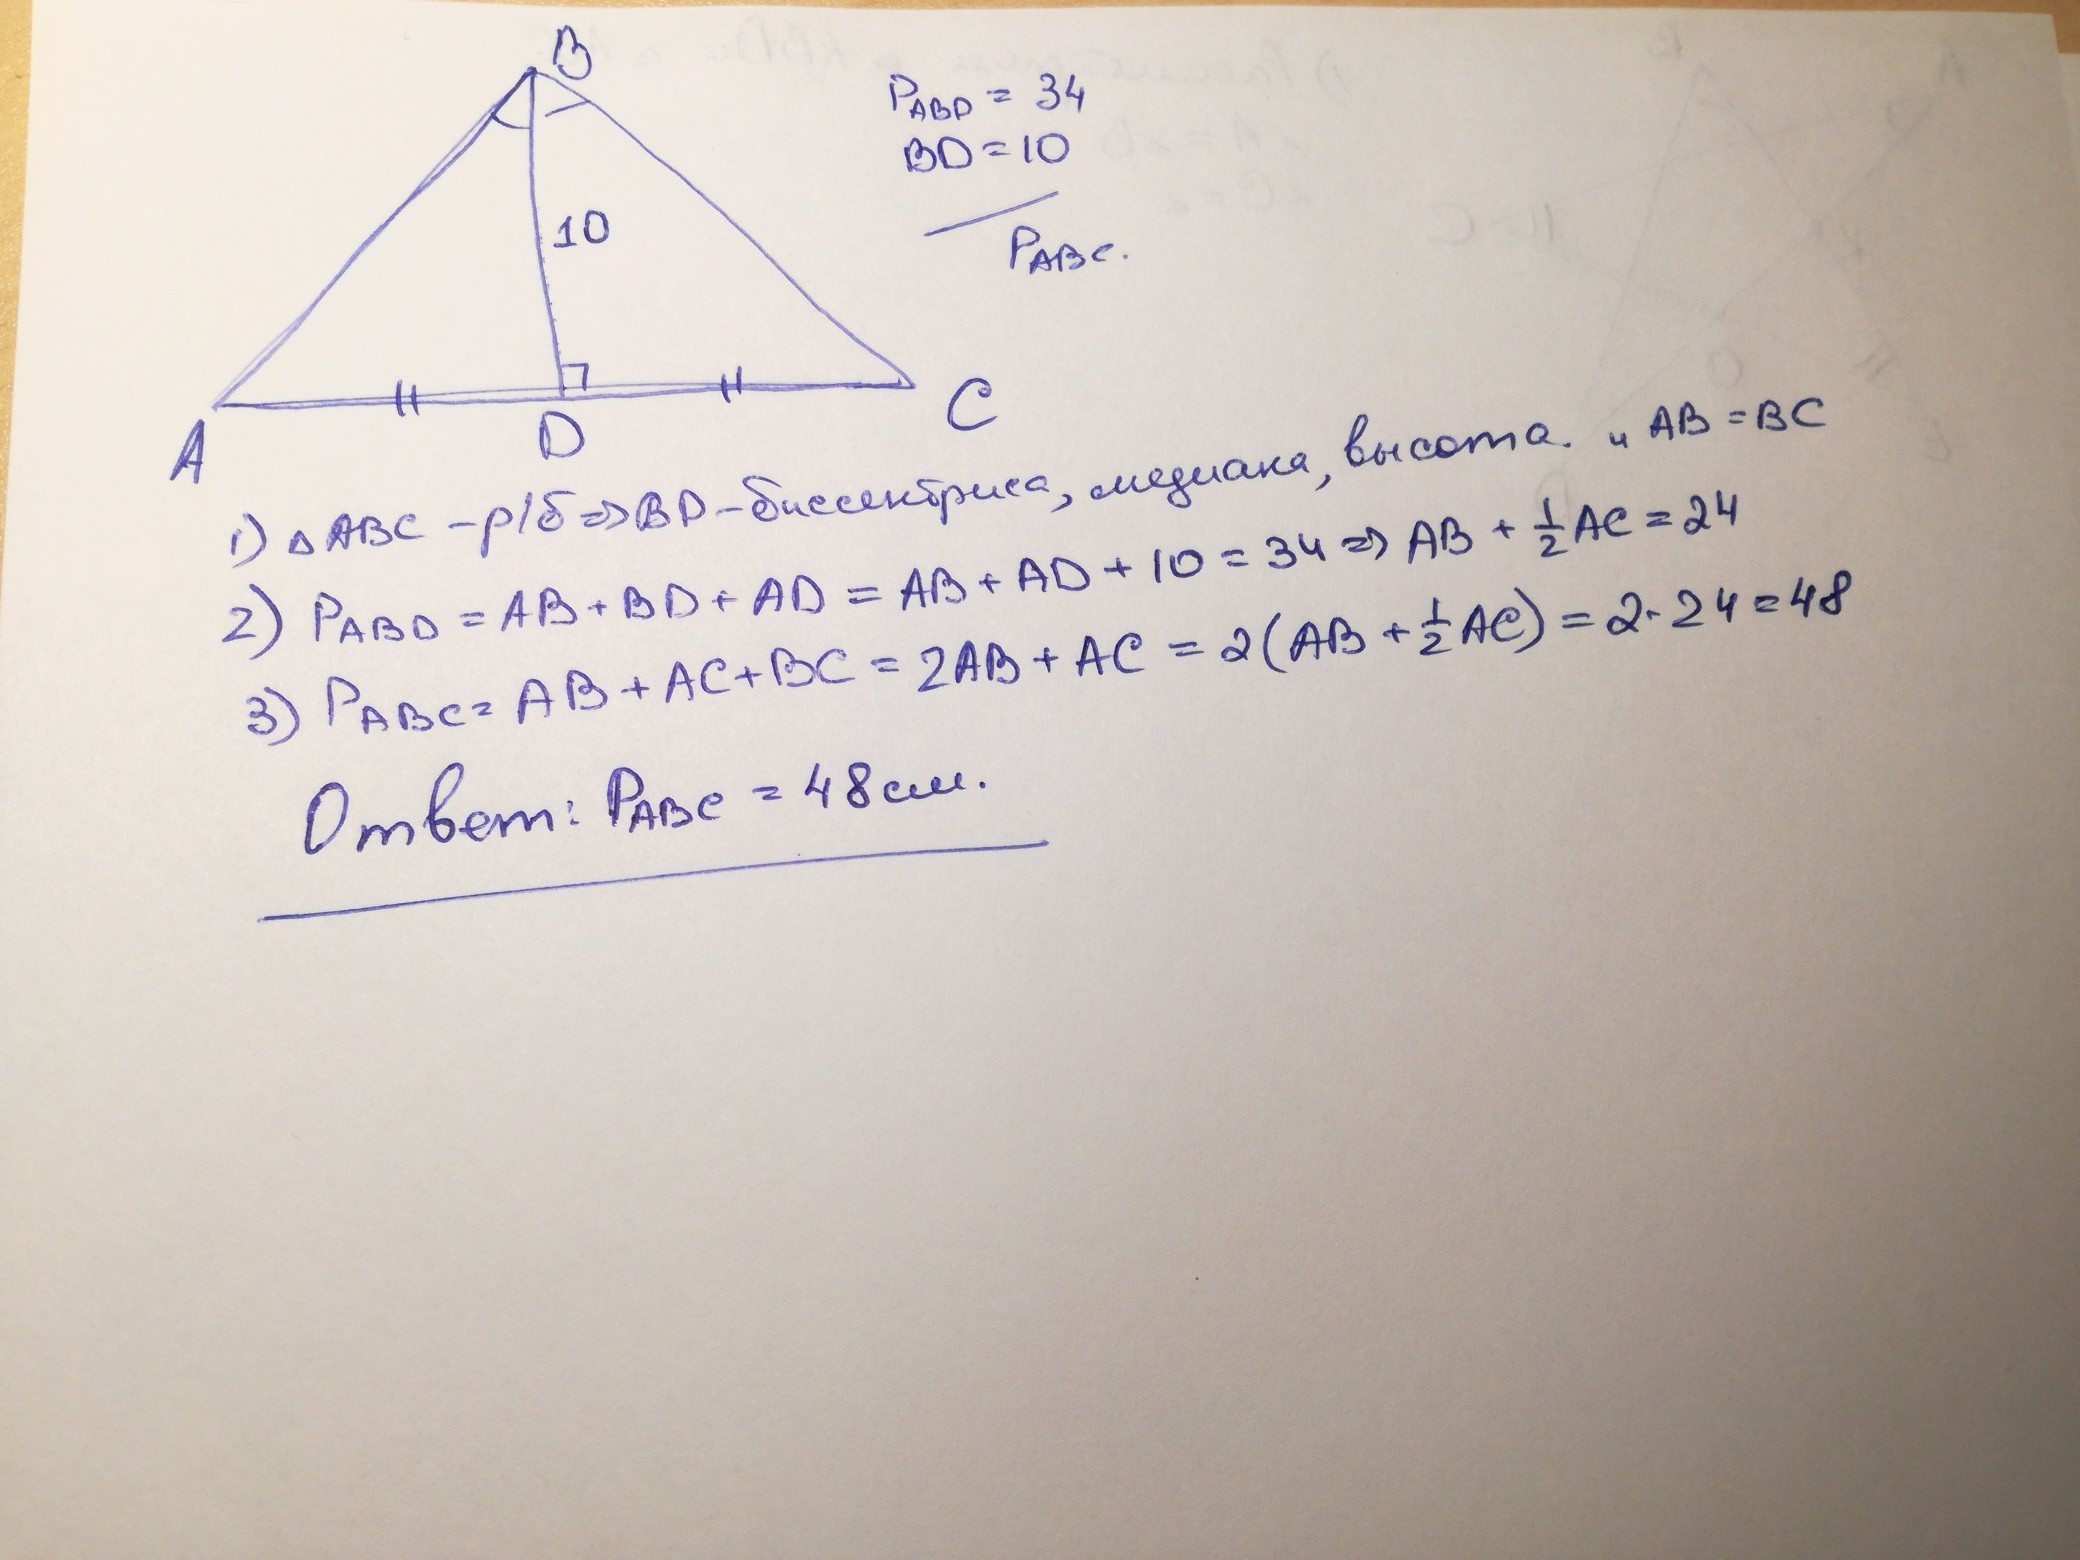 B
P_ABD = 34
BD = 10
10
P_ABC.
A
D
C
1) △ABC - р/б => BD - биссектриса, медиана, высота. и AB = BC
2) P_ABD = AB + BD + AD = AB + AD + 10 = 34 => AB + 1/2 AC = 24
3) P_ABC = AB + AC + BC = 2AB + AC = 2(AB + 1/2 AC) = 2·24 = 48
Ответ: P_ABC = 48см.